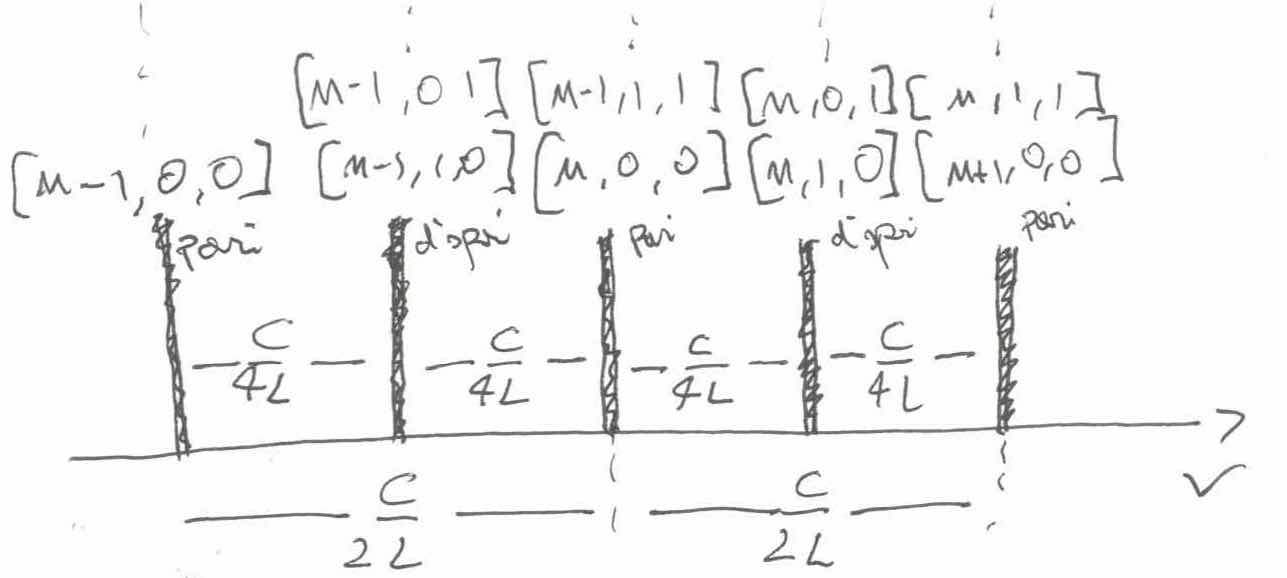 [n-1,0 1] [n-1,1,1] [n,0,1] [n,1,1]
[n-1,0,0] [n-1,1,0] [n,0,0] [n,1,0] [n+1,0,0]
pari dispari pari dispari pari
C/4L C/4L C/4L C/4L
ν
C/2L C/2L